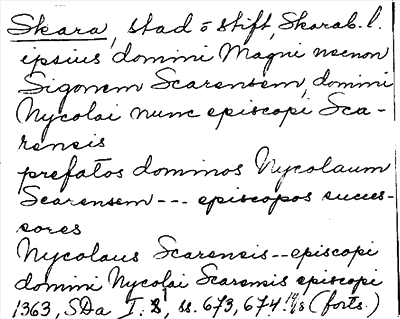 Skara, stad o stift, Skarab. l.
ipsius domini Magni necnon
Sigonem Scarensem, domini
Nycolai nunc episcopi Sca-
rensis
prefatos dominos Nycolaum
Scarensem --- episcopos succes-
sores
Nycolaus Scarensis -- episcopi
domini Nycolai Scarensis episcopi
1363, SDa I. 8, ss. 673, 674. (forts.)